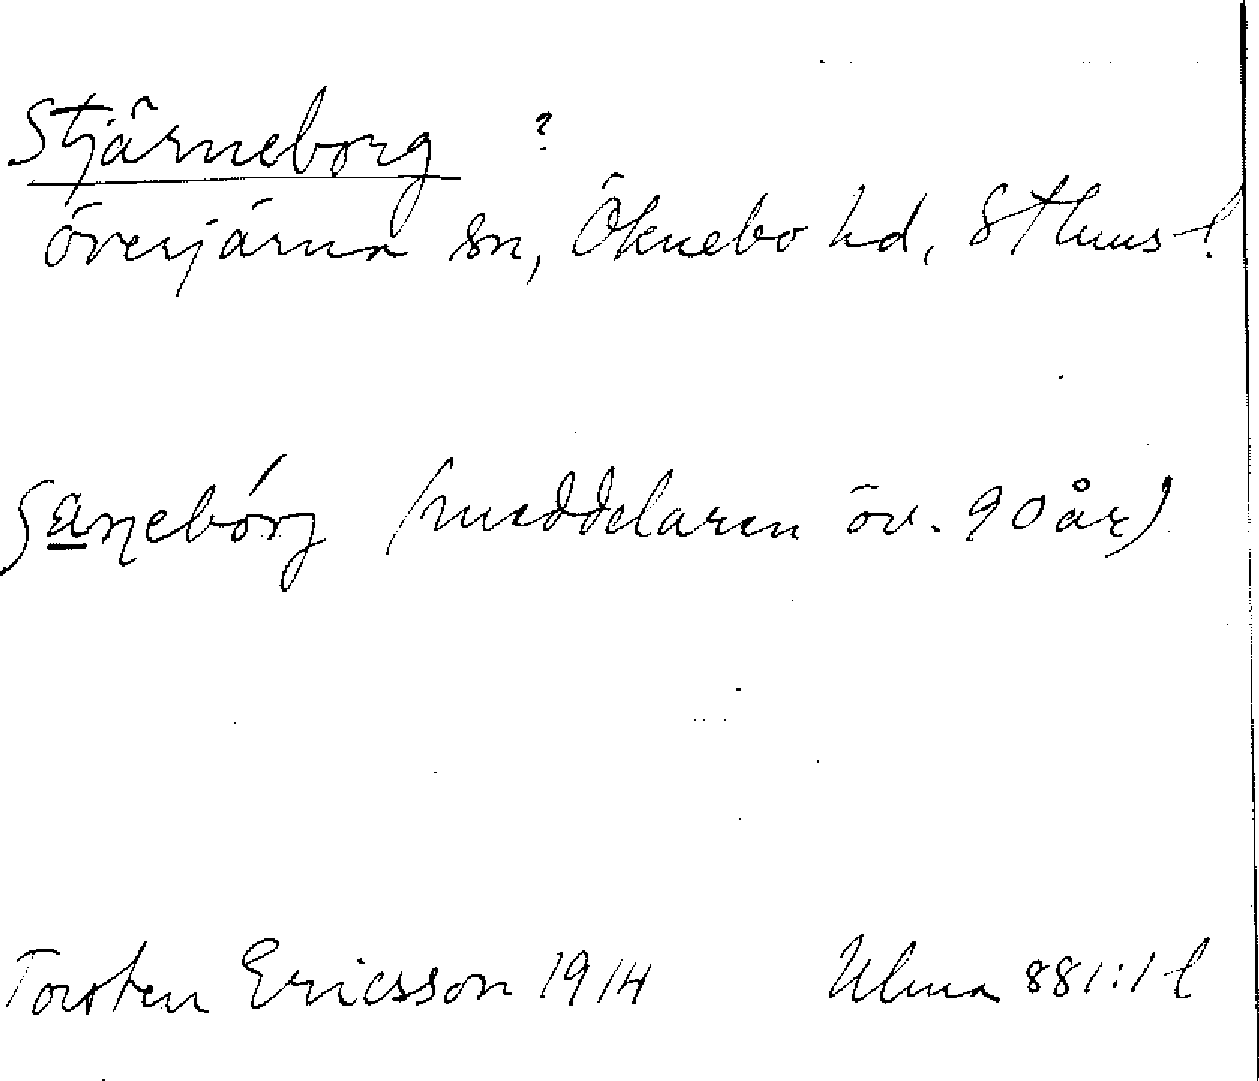 Stjärneborg ?
Överjärna sn, Öknebo hd, Sthms l.
(meddelaren öv. 90 år)
Torsten Ericsson 1914 Ulma 881:1 l